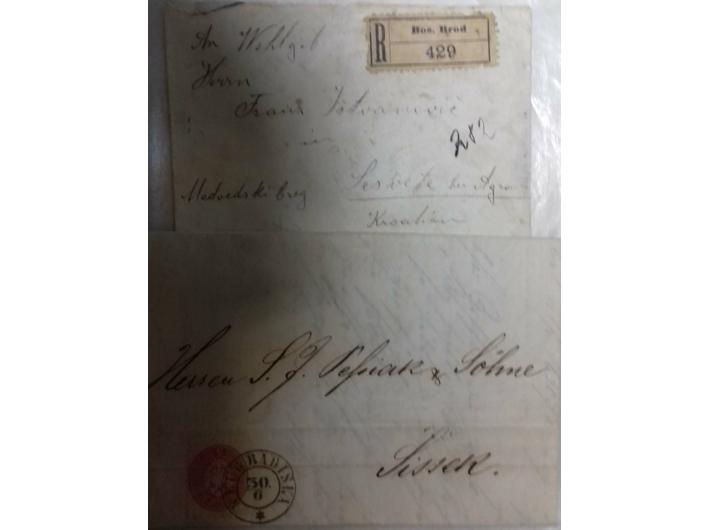 An Wohlgeb
Bos. Brod
R
429
Herrn
Franz
in
282
Medvedski breg
Sesvete bei Agram
Kroatien
Herren S. J. & Söhne
Sissek.
30.
6